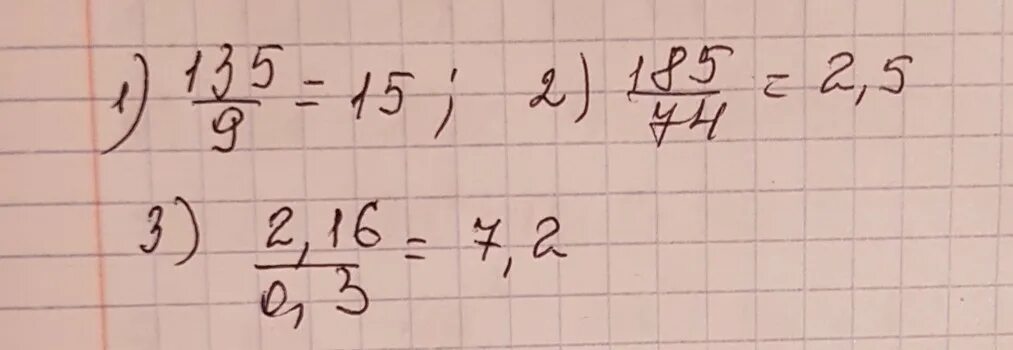 1) 135/9 = 15; 2) 185/74 = 2,5
3) 2,16/0,3 = 7,2